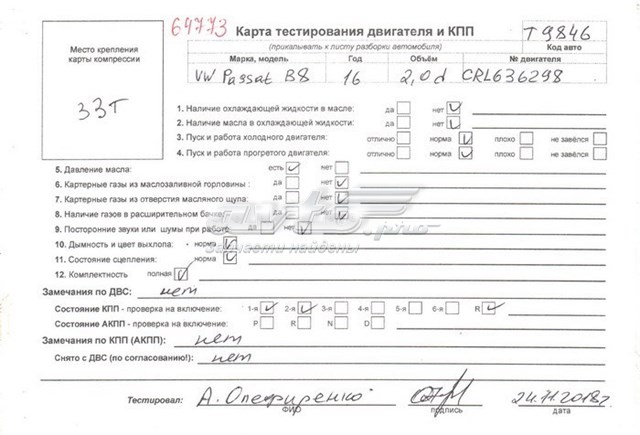 64773 Карта тестирования двигателя и КПП Т9846
(прикалывать к листу разборки автомобиля) Код авто
Место крепления карты компрессии
Марка, модель Год Объём № двигателя
VW Passat B8 16 2,0d CRL636298
33т
1. Наличие охлаждающей жидкости в масле: да нет
2. Наличие масла в охлаждающей жидкости: да нет
3. Пуск и работа холодного двигателя: отлично норма плохо не завёлся
4. Пуск и работа прогретого двигателя: отлично норма плохо не завёлся
5. Давление масла: есть нет
6. Картерные газы из маслозаливной горловины: да нет
7. Картерные газы из отверстия масляного щупа: да нет
8. Наличие газов в расширительном бачке: да нет
9. Посторонние звуки или шумы при работе: да нет
10. Дымность и цвет выхлопа: норма
Запчасти найдены
11. Состояние сцепления: норма
12. Комплектность полная
Замечания по ДВС: нет
Состояние КПП - проверка на включение: 1-я 2-я 3-я 4-я 5-я 6-я R
Состояние АКПП - проверка на включение: P R N D
Замечания по КПП (АКПП): нет
Снято с ДВС (по согласованию!): нет
Тестировал: А. Олефиренко 24.11.2018г
ФИО подпись дата